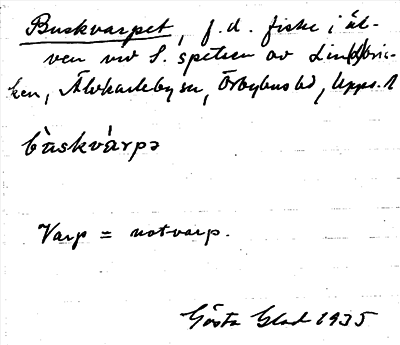 Buskvarpet, f.d. fiske i äl-
ven vid S. spetsen av Lindbric-
ken, Älvkarleby sn, Örbyhus hd, Upps. l
bùskvàrpə
Varp = notvarp.
Gösta Glad 1935